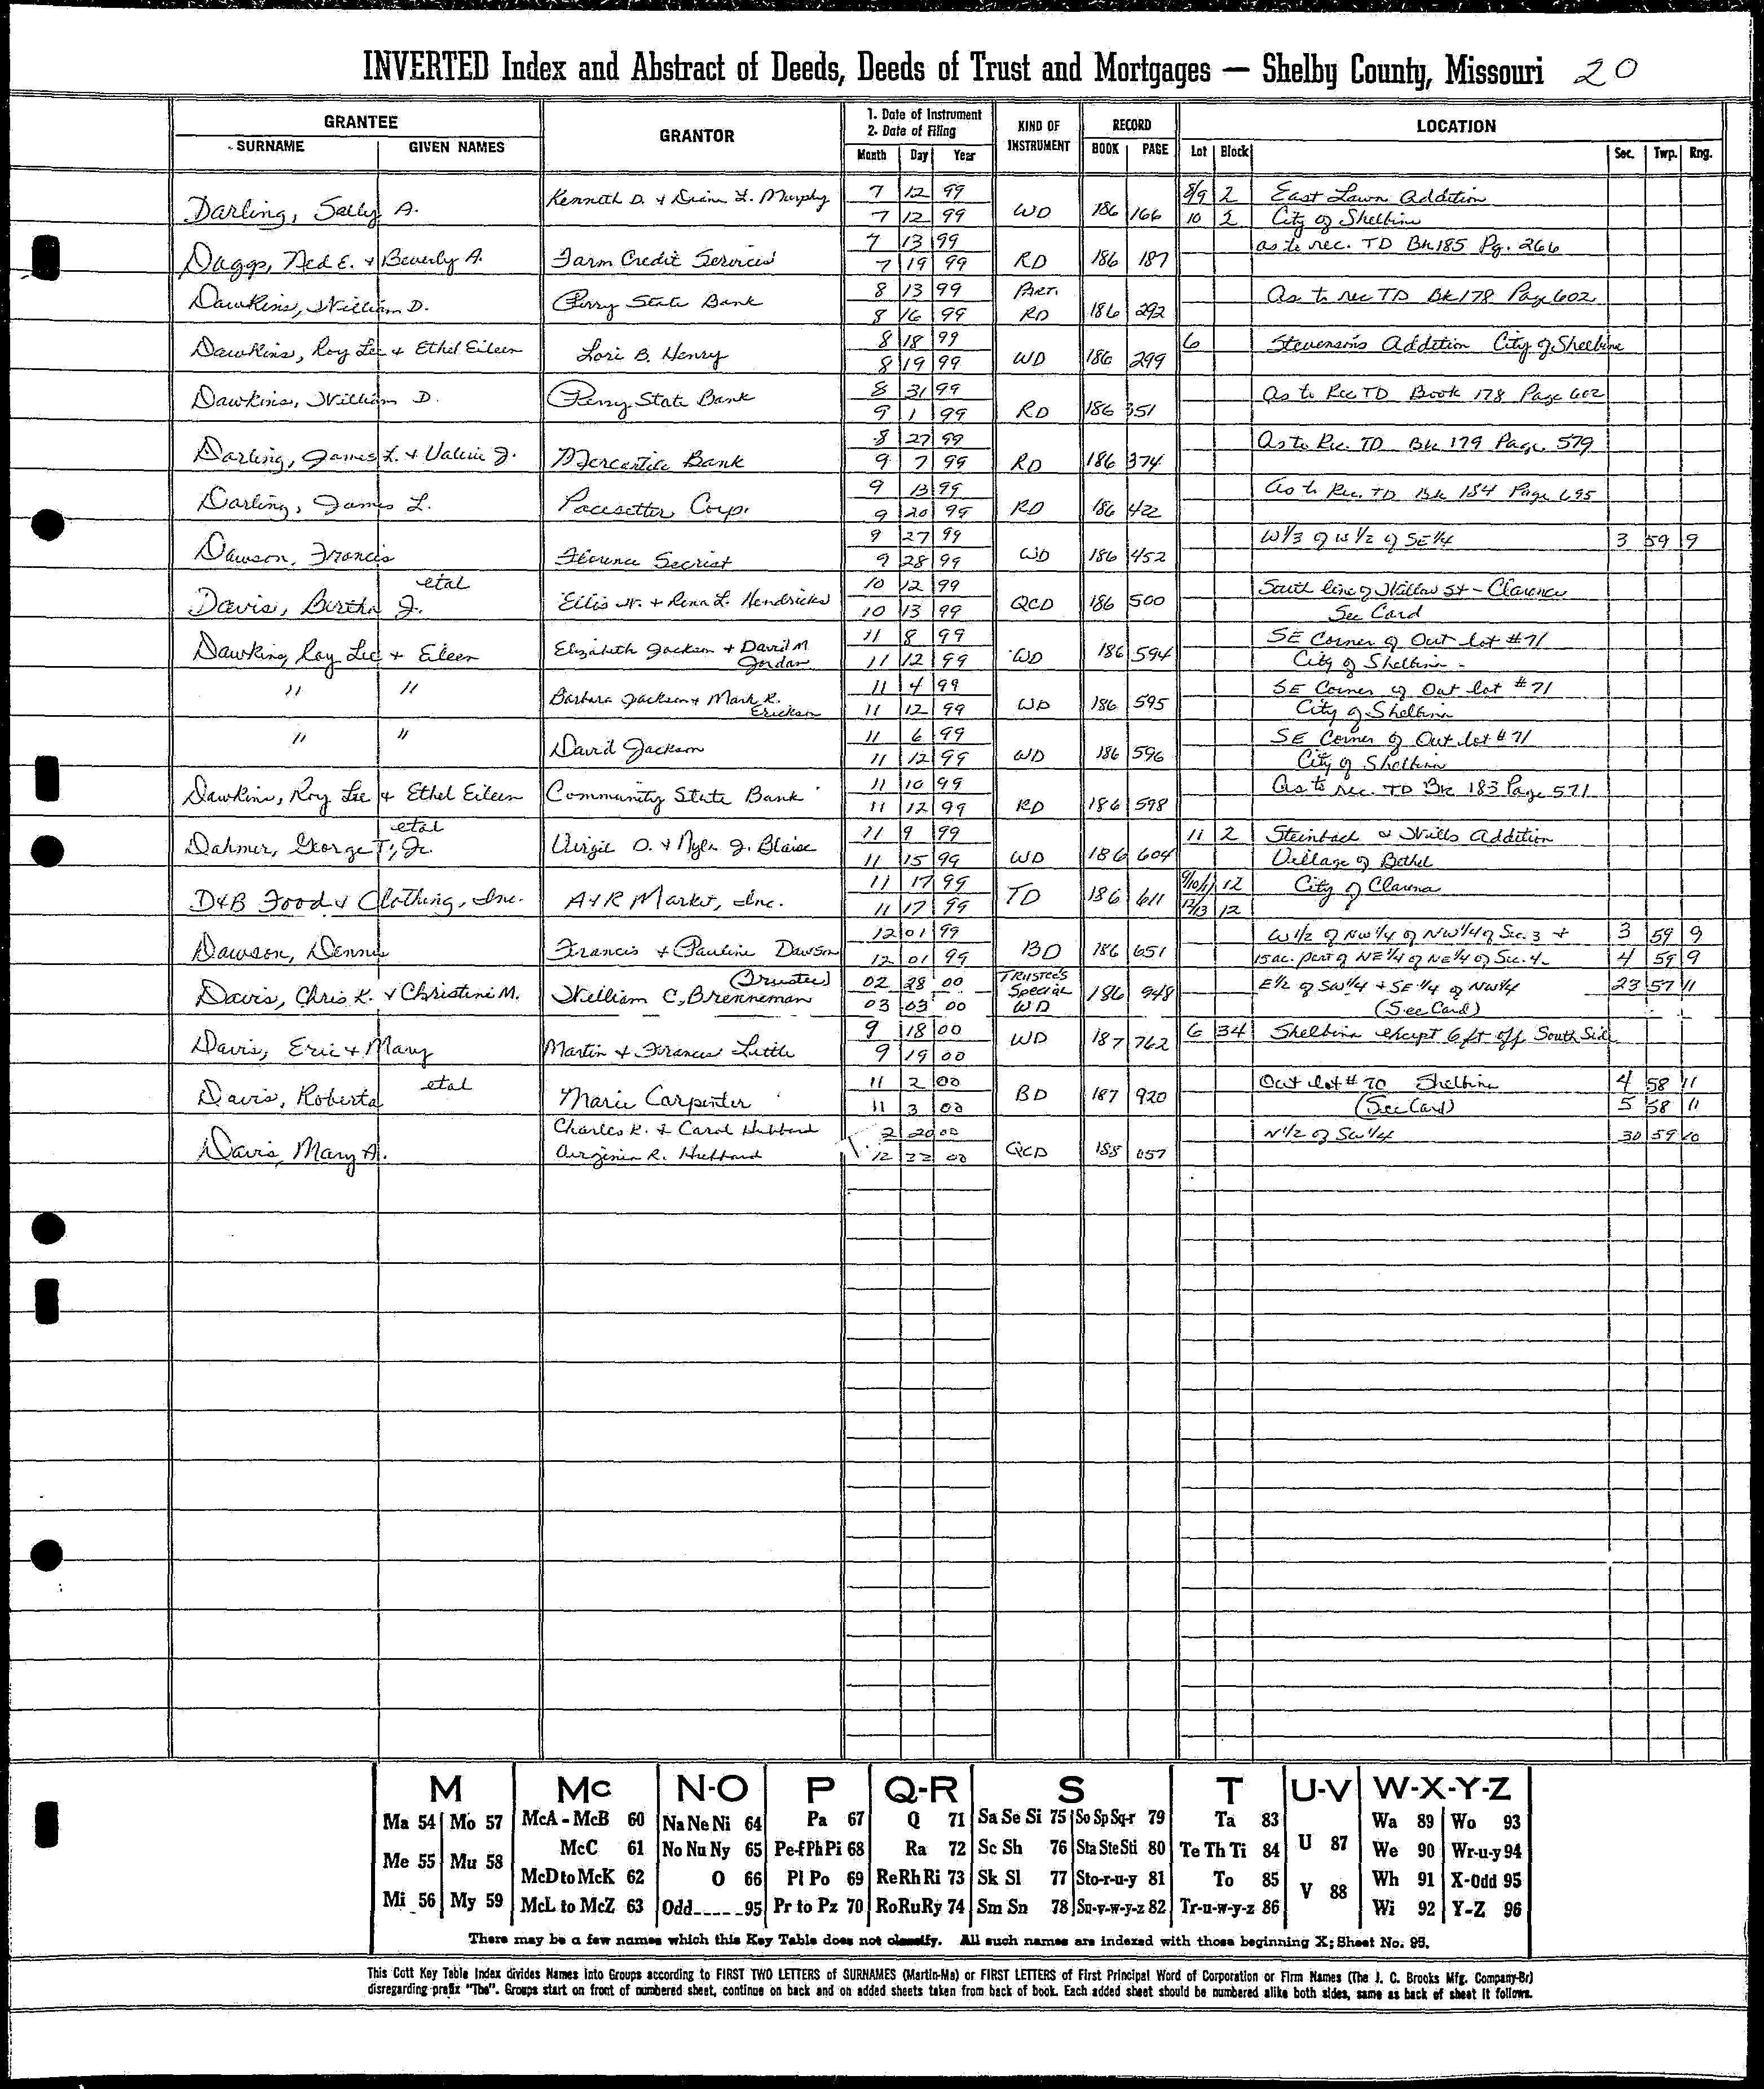 INVERTED Index and Abstract of Deeds, Deeds of Trust and Mortgages — Shelby County, Missouri 20
GRANTEE GRANTOR 1. Date of Instrument 2. Date of Filing KIND OF INSTRUMENT RECORD LOCATION
SURNAME GIVEN NAMES Month Day Year BOOK PAGE Lot Block Sec. Twp. Rng.
Darling, Sally A. Kenneth D. & Diane L. Murphy 7 12 99 WD 186 166 8/9 2 East Lawn Addition
7 12 99 10 2 City of Shelbina
Daggs, Ned E. & Beverly A. Farm Credit Services 7 13 99 RD 186 187 as to rec. TD Bk 185 Pg. 266
7 19 99
Dawkins, William D. Perry State Bank 8 13 99 Part. RD 186 292 As to rec TD Bk 178 Page 602
8 16 99
Dawkins, Roy Lee & Ethel Eileen Lori B. Henry 8 18 99 WD 186 299 6 Stevenson's Addition City of Shelbina
8 19 99
Dawkins, William D. Perry State Bank 8 31 99 RD 186 351 As to Rec TD Book 178 Page 602
9 1 99
Darling, James L. & Valerie J. Mercantile Bank 8 27 99 RD 186 374 As to Rec. TD Bk 179 Page 579
9 7 99
Darling, James L. Pacesetter Corp. 9 13 99 RD 186 422 As to Rec. TD Bk 184 Page 695
9 20 99
Dawson, Francis Florence Secrist 9 27 99 WD 186 452 W 1/3 of W 1/2 of SE 1/4 3 59 9
9 28 99
Davis, Birtha J. etal Ellis W. & Rena L. Hendricks 10 12 99 QCD 186 500 South line of Willow St - Clarence
10 13 99 See Card
Dawkins, Roy Lee & Eileen Elizabeth Jackson & David M Jordan 11 8 99 WD 186 594 SE Corner of Out lot #71
11 12 99 City of Shelbina
" " Barbara Jackson & Mark R. Erickson 11 4 99 WD 186 595 SE Corner of Out lot #71
11 12 99 City of Shelbina
" " David Jackson 11 6 99 WD 186 596 SE Corner of Out lot #71
11 12 99 City of Shelbina
Dawkins, Roy Lee & Ethel Eileen Community State Bank 11 10 99 RD 186 598 As to rec. TD Bk 183 Page 571
11 12 99
Dahmer, George T., Jr. etal Virgil O. & Nyla J. Blaise 11 9 99 WD 186 604 11 2 Steinbach & Wills Addition
11 15 99 Village of Bethel
D&B Food & Clothing, Inc. A&R Market, Inc. 11 17 99 TD 186 611 9/10/11 12 City of Clarence
11 17 99 12/13 12
Dawson, Dennis Francis & Pauline Dawson 12 01 99 BD 186 651 W 1/2 of NW 1/4 of NW 1/4 of Sec. 3 & 3 59 9
12 01 99 15 ac. part of NE 1/4 of NE 1/4 of Sec. 4 4 59 9
Davis, Chris K. & Christine M. William C. Brenneman (Trustee) 02 28 00 Trustee's Special WD 186 948 E 1/2 of SW 1/4 & SE 1/4 of NW 1/4 23 57 11
03 03 00 (See Card)
Davis, Eric & Mary Martin & Frances Little 9 18 00 WD 187 762 6 34 Shelbina except 6 ft off South Side
9 19 00
Davis, Roberta etal Marie Carpenter 11 2 00 BD 187 920 Out lot #70 Shelbina 4 58 11
11 3 00 (See Card) 5 58 11
Davis, Mary A. Charles K. & Carol Hubbard 2 20 00 QCD 188 057 N 1/2 of SW 1/4 30 59 10
Virginia R. Hubbard 12 22 00
M Mc N-O P Q-R S T U-V W-X-Y-Z
Ma 54 Mo 57 McA - McB 60 Na Ne Ni 64 Pa 67 Q 71 Sa Se Si 75 So Sp Sq-r 79 Ta 83 U 87 Wa 89 Wo 93
Me 55 Mu 58 McC 61 No Nu Ny 65 Pe-f Ph Pi 68 Ra 72 Sc Sh 76 Sta Ste Sti 80 Te Th Ti 84 We 90 Wr-u-y 94
McD to McK 62 O 66 Pl Po 69 Re Rh Ri 73 Sk Sl 77 Sto-r-u-y 81 To 85 V 88 Wh 91 X-Odd 95
Mi 56 My 59 McL to McZ 63 Odd 95 Pr to Pz 70 Ro Ru Ry 74 Sm Sn 78 Su-v-w-y-z 82 Tr-u-w-y-z 86 Wi 92 Y-Z 96
There may be a few names which this Key Table does not classify. All such names are indexed with those beginning X; Sheet No. 95.
This Cott Key Table Index divides Names into Groups according to FIRST TWO LETTERS of SURNAMES (Martin-Ma) or FIRST LETTERS of First Principal Word of Corporation or Firm Names (The J. C. Brooks Mfg. Company-Br)
disregarding prefix "The". Groups start on front of numbered sheet, continue on back and on added sheets taken from back of book. Each added sheet should be numbered alike both sides, same as back of sheet it follows.